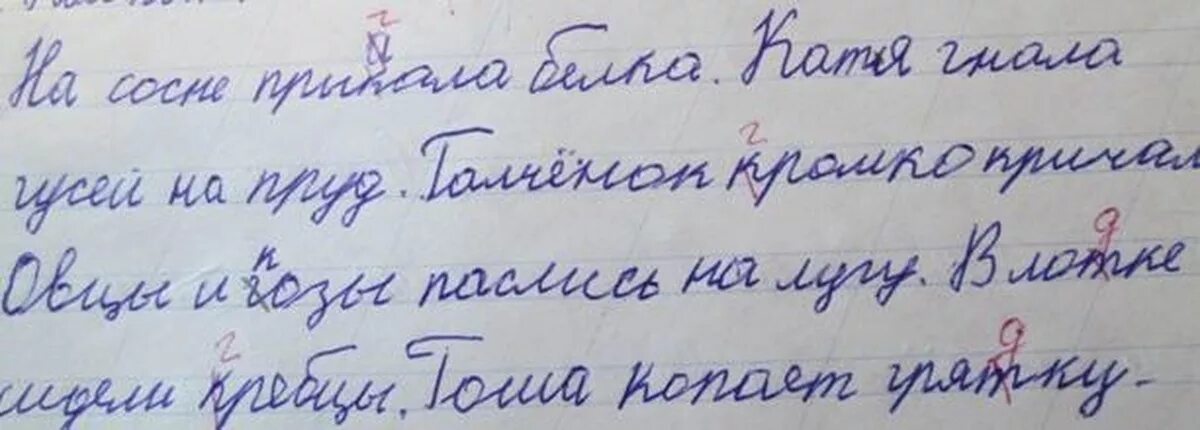 На сосне прикала белка. Катя гнала
гусей на пруд. Галчёнок кромко кричал
Овцы и козы паслись на лугу. В лотке
сидели кребцы. Гоша копает грятку.